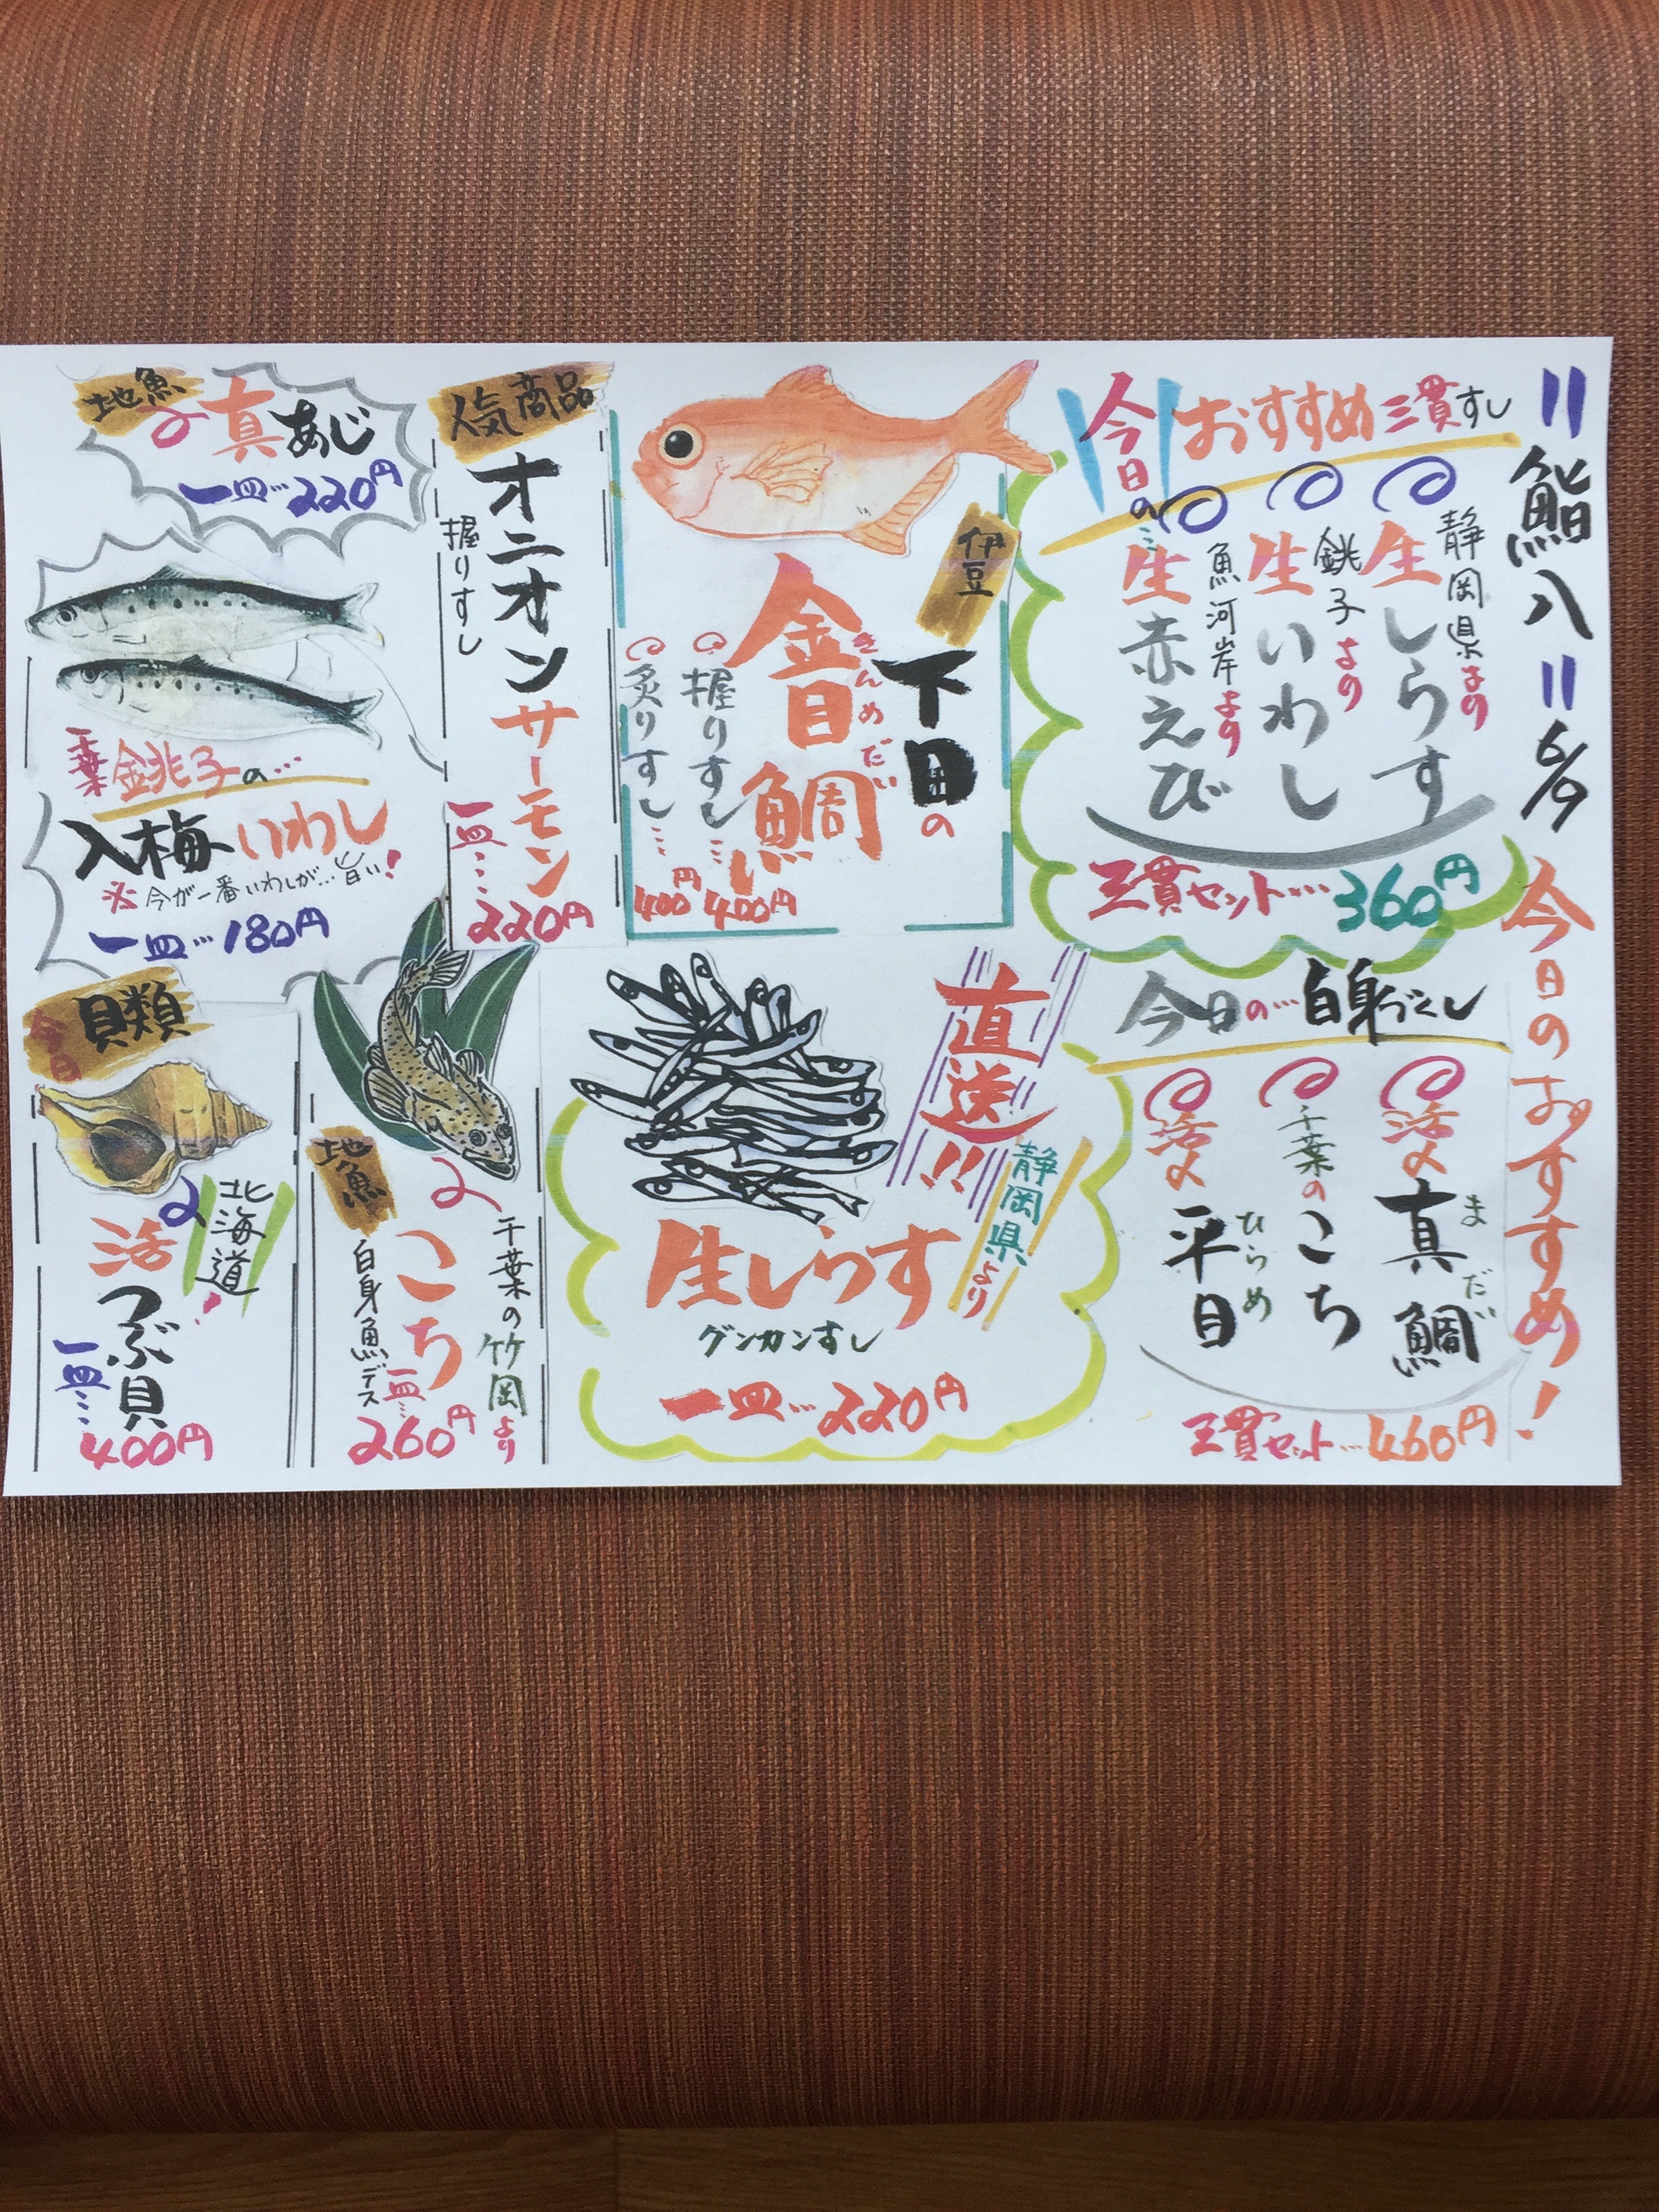 鮨八 6/9 今日のおすすめ!
今日の
おすすめ三貫すし
静岡県より
生しらす
銚子より
生いわし
魚河岸より
生赤えび
三貫セット…360円
今日の…白身づくし
活〆
真鯛
まだい
千葉の
こち
活〆
平目
ひらめ
三貫セット…460円
伊豆
下田の
金目鯛
きんめだい
握りすし…400円
炙りすし…400円
直送!!
静岡県より
生しらす
グンカンすし
一皿…220円
人気商品
オニオンサーモン
握りすし
一皿…220円
地魚
真あじ
一皿…220円
千葉
銚子の…
入梅いわし
※今が一番いわしが…旨い!
一皿…180円
地魚
千葉の竹岡より
こち
白身魚デス
一皿…260円
今日
貝類
北海道
活つぶ貝
一皿…400円